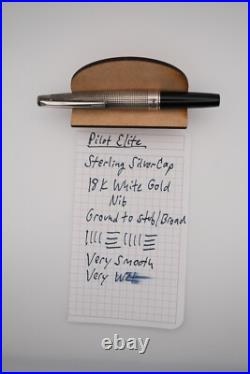 Pilot Elite
Sterling Silver Cap
18K White Gold
Nib
Ground to stub/Broad
Very Smooth
Very Wet
stamps